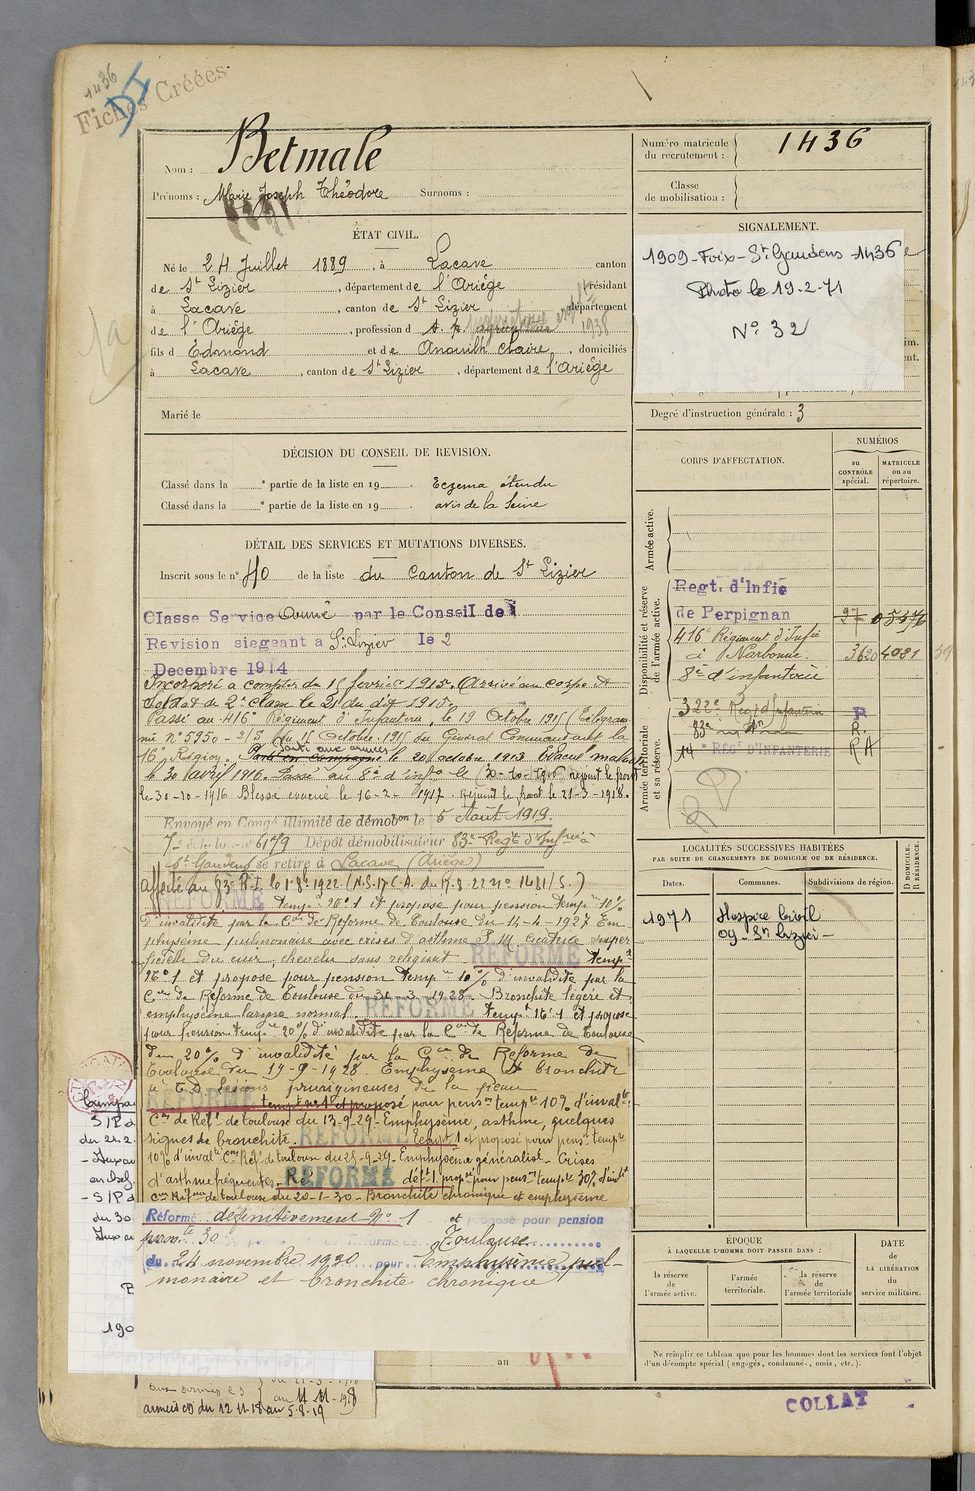 1436
Fiches Créées
DI
Nom : Betmale
Prénoms : Marie Joseph Théodore Surnoms :
Numéro matricule du recrutement : 1436
Classe de mobilisation :
ÉTAT CIVIL.
Né le 24 Juillet 1889, à Lacave canton
de St Lizier, département de l'Ariège, résidant
à Lacave, canton de St Lizier, département
de l'Ariège, profession d
1938
fils d Edmond et de Anouilh Claire, domiciliés
à Lacave, canton de St Lizier, département de l'Ariège
Marié le
SIGNALEMENT.
1909-Foix-St Gaudens-1436
Photo le 19-2-71
N° 32
Degré d'instruction générale : 3
DÉCISION DU CONSEIL DE REVISION.
Classé dans la e partie de la liste en 19 . Eczema étendu
Classé dans la e partie de la liste en 19 . avis de la Seine
DÉTAIL DES SERVICES ET MUTATIONS DIVERSES.
Inscrit sous le n° 40 de la liste du Canton de St Lizier
Classe Service Armé par le Conseil de
Revision siegeant a St Lizier le 2
Decembre 1914
Incorporé à compter du 15 février 1915. Arrivé au corps et
soldat de 2e classe le 21 du dit 1915.
Passé au 416e Régiment d'Infanterie, le 19 Octobre 1915 (Télégram
me n° 5950-2/3 du 15 Octobre 1915 du Général Commandant la
16e Région. Parti aux armées le 20 octobre 1915 Evacué malade
le 30 avril 1916. Passé au 8e d'infie le 30-10-1916 rejoint le front
le 30-10-1916 Blessé évacué le 16-2-1917 rejoint le front le 21-3-1918.
Envoyé en Congé illimité de démobon le 5 Août 1919.
7e échelon n° 6179 Dépôt démobilisateur 83e Regt d'Infie à
St Gaudens se retire à Lacave (Ariège)
Affecté au 83e R.I. le 1.8.1922
REFORMÉ tempre n° 1 et proposé pour pension tempre 10%
d'invalidité par la Con de Réforme de Toulouse du 14-4-1927 Em
physème pulmonaire avec crises d'asthme P.M. cicatrice super
ficielle du cuir chevelu sans reliquat. REFORMÉ tempt
n° 1 et proposé pour pension tempre 10% d'invalidité par la
Con de Réforme de Toulouse du 31-3-1928. Bronchite légère et
emphysème larynx normal. REFORMÉ tempt n° 1 et proposé
pour pension tempre 20% d'invalidité par la Con de Réforme de Toulouse
de 20% d'invalidité par la Con de Réforme de
Toulouse du 19-9-1928. Emphysème et bronchite
lésions prurigineuses de la peau
REFORMÉ tempt n° 1 et proposé pour pension tempre 10% d'invalté
Con de Réfe de toulouse du 13-9-29- Emphysème, asthme, quelques
signes de bronchite. REFORMÉ tempt 1 et proposé pour pension tempre
10% d'invalté Con Réfe de toulouse du 25-9-29- Emphysème généralisé- Crises
d'asthme fréquentes. REFORMÉ déft 1. proposé pour pension tempre 30% d'invté
Con Réfme de toulouse du 20-1-30- Bronchite chronique et emphysème
Réformé définitivement N° 1 et proposé pour pension
30 Toulouse
du 24 novembre 1930 pour Emphysème pul-
monaire et bronchite chronique
au
du 21-3-1918
aux armées CS au 11-11-1918
armées CD du 12.11.18 au 5-8-19
CORPS D'AFFECTATION.
NUMÉROS
au CONTRÔLE spécial.
MATRICULE ou au répertoire.
Armée active.
Disponibilité et réserve de l'armée active.
Regt. d'Infie
de Perpignan 27 05476
416e Régiment d'Infie
à Narbonne. 3620 4931
8e d'infanterie
Armée territoriale et sa réserve.
322e Regt d'infanterie R
83e R.
14e REGt D'INFANTERIE RA
LOCALITÉS SUCCESSIVES HABITÉES
PAR SUITE DE CHANGEMENTS DE DOMICILE OU DE RÉSIDENCE.
D DOMICILE. R RÉSIDENCE.
Dates. Communes. Subdivisions de région.
1971 Hospice Civil
09-St Lizier-
ÉPOQUE
À LAQUELLE L'HOMME DOIT PASSER DANS :
la réserve de l'armée active.
l'armée territoriale.
la réserve de l'armée territoriale
DATE de LA LIBÉRATION du service militaire.
Ne remplir ce tableau que pour les hommes dont les services font l'objet
d'un décompte spécial (engagés, condamnés, omis, etc.).
COLLAT